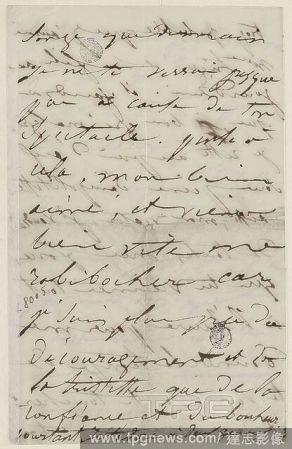 songe que demain
je ne te verrai presque
pas à cause de ton
spectacle. pense à
cela, mon bien
aimé, et viens
bien vite me
car
je suis plus près du
découragement et de
la tristesse que de la
confiance et du bonheur
pourtant
TPG
www.tpgnews.com 達志影像